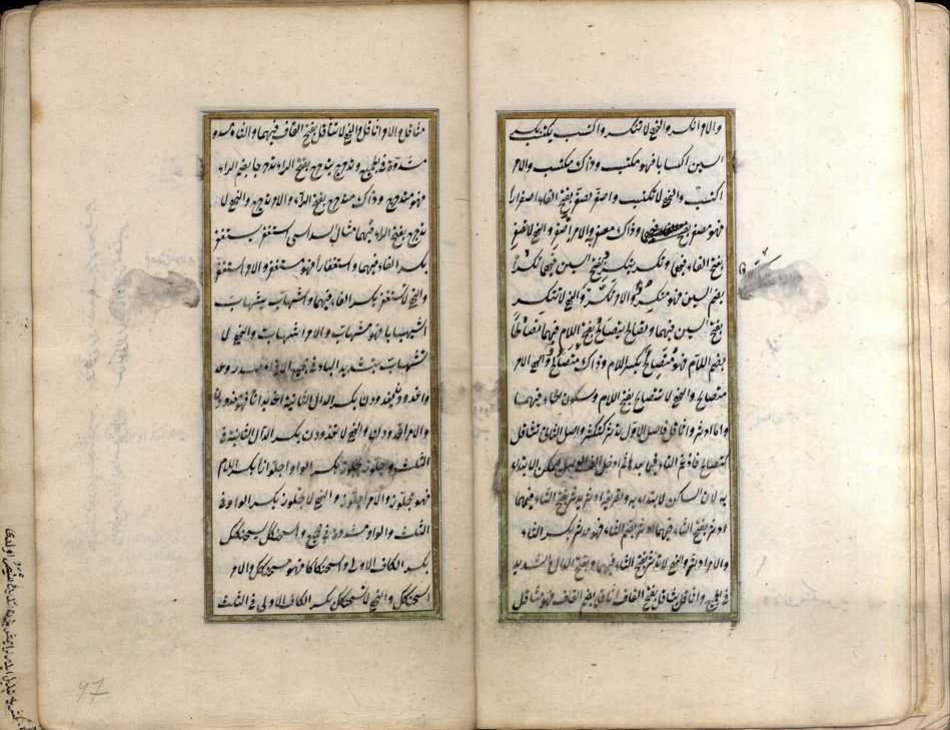 والامر انكسر والنهي لا تنكسر واكتسب يكتسب بكسر
السين اكتسابا فهو مكتسب وذاك مكتسب والامر
اكتسب والنهي لا تكتسب واصفر يصفر بفتح الفاء اصفرارا
فهو مصفر وذاك مصفر والامر اصفر والنهي لا تصفر
بفتح الفاء فيهن وتكسر يتكسر بفتح السين فيهن تكسرا
بضم السين فهو متكسر والامر تكسر والنهي لا تتكسر
بفتح السين فيهما وتصالح يتصالح بفتح اللام فيهما تصالحا
بضم اللام فهو متصالح بكسر اللام وذاك متصالح والامر
تصالح والنهي لا تتصالح بفتح اللام وسكون الحاء فيهما
واما ادثر واثاقل فاصل الاول تدثر كتكسر واصل الثاني تثاقل
كتصالح فادغم التاء فيما بعدها ثم ادخل الف الوصل ليمكن الابتداء
به لان الساكن لا يبتدأ به والتصريف ادثر يدثر بفتح الثاء فيهما
ادثرا بضم الثاء فهو مدثر بكسر الثاء
والامر ادثر والنهي لا تدثر بفتح الثاء فيهما وبفتح الدال المشددة
في الجميع واثاقل يثاقل بفتح القاف اثاقلا بضم القاف فهو مثاقل
مثاقل والامر اثاقل والنهي لا تثاقل بفتح القاف فيهما والثاء مشددة
مشددة في الجميع وتدحرج يتدحرج بفتح الراء تدحرجا بضم الراء
فهو متدحرج وذاك متدحرج بفتح الراء والامر تدحرج والنهي لا
تتدحرج بفتح الراء فيهما مثال السداسي استغفر يستغفر
بكسر الفاء استغفارا فهو مستغفر والامر استغفر
والنهي لا تستغفر بكسر الفاء فيهما واشهاب يشهاب
اشهيبابا فهو مشهاب والامر اشهاب والنهي لا
تشهاب بتشديد الباء في الجميع
واغدودن يغدودن بكسر الدال الثانية اغديدانا فهو مغدودن
والامر اغدودن والنهي لا تغدودن بكسر الدال الثانية في
الثلث واجلوز يجلوز بكسر الواو اجلوازا بكسر اللام
فهو مجلوز والامر اجلوز والنهي لا تجلوز بكسر الواو في
الثلث والواو مشددة في الجميع واسحنكك يسحنكك
بكسر الكاف الاولى اسحنكاكا فهو مسحنكك والامر
اسحنكك والنهي لا تسحنكك بكسر الكاف الاولى في الثلث
97